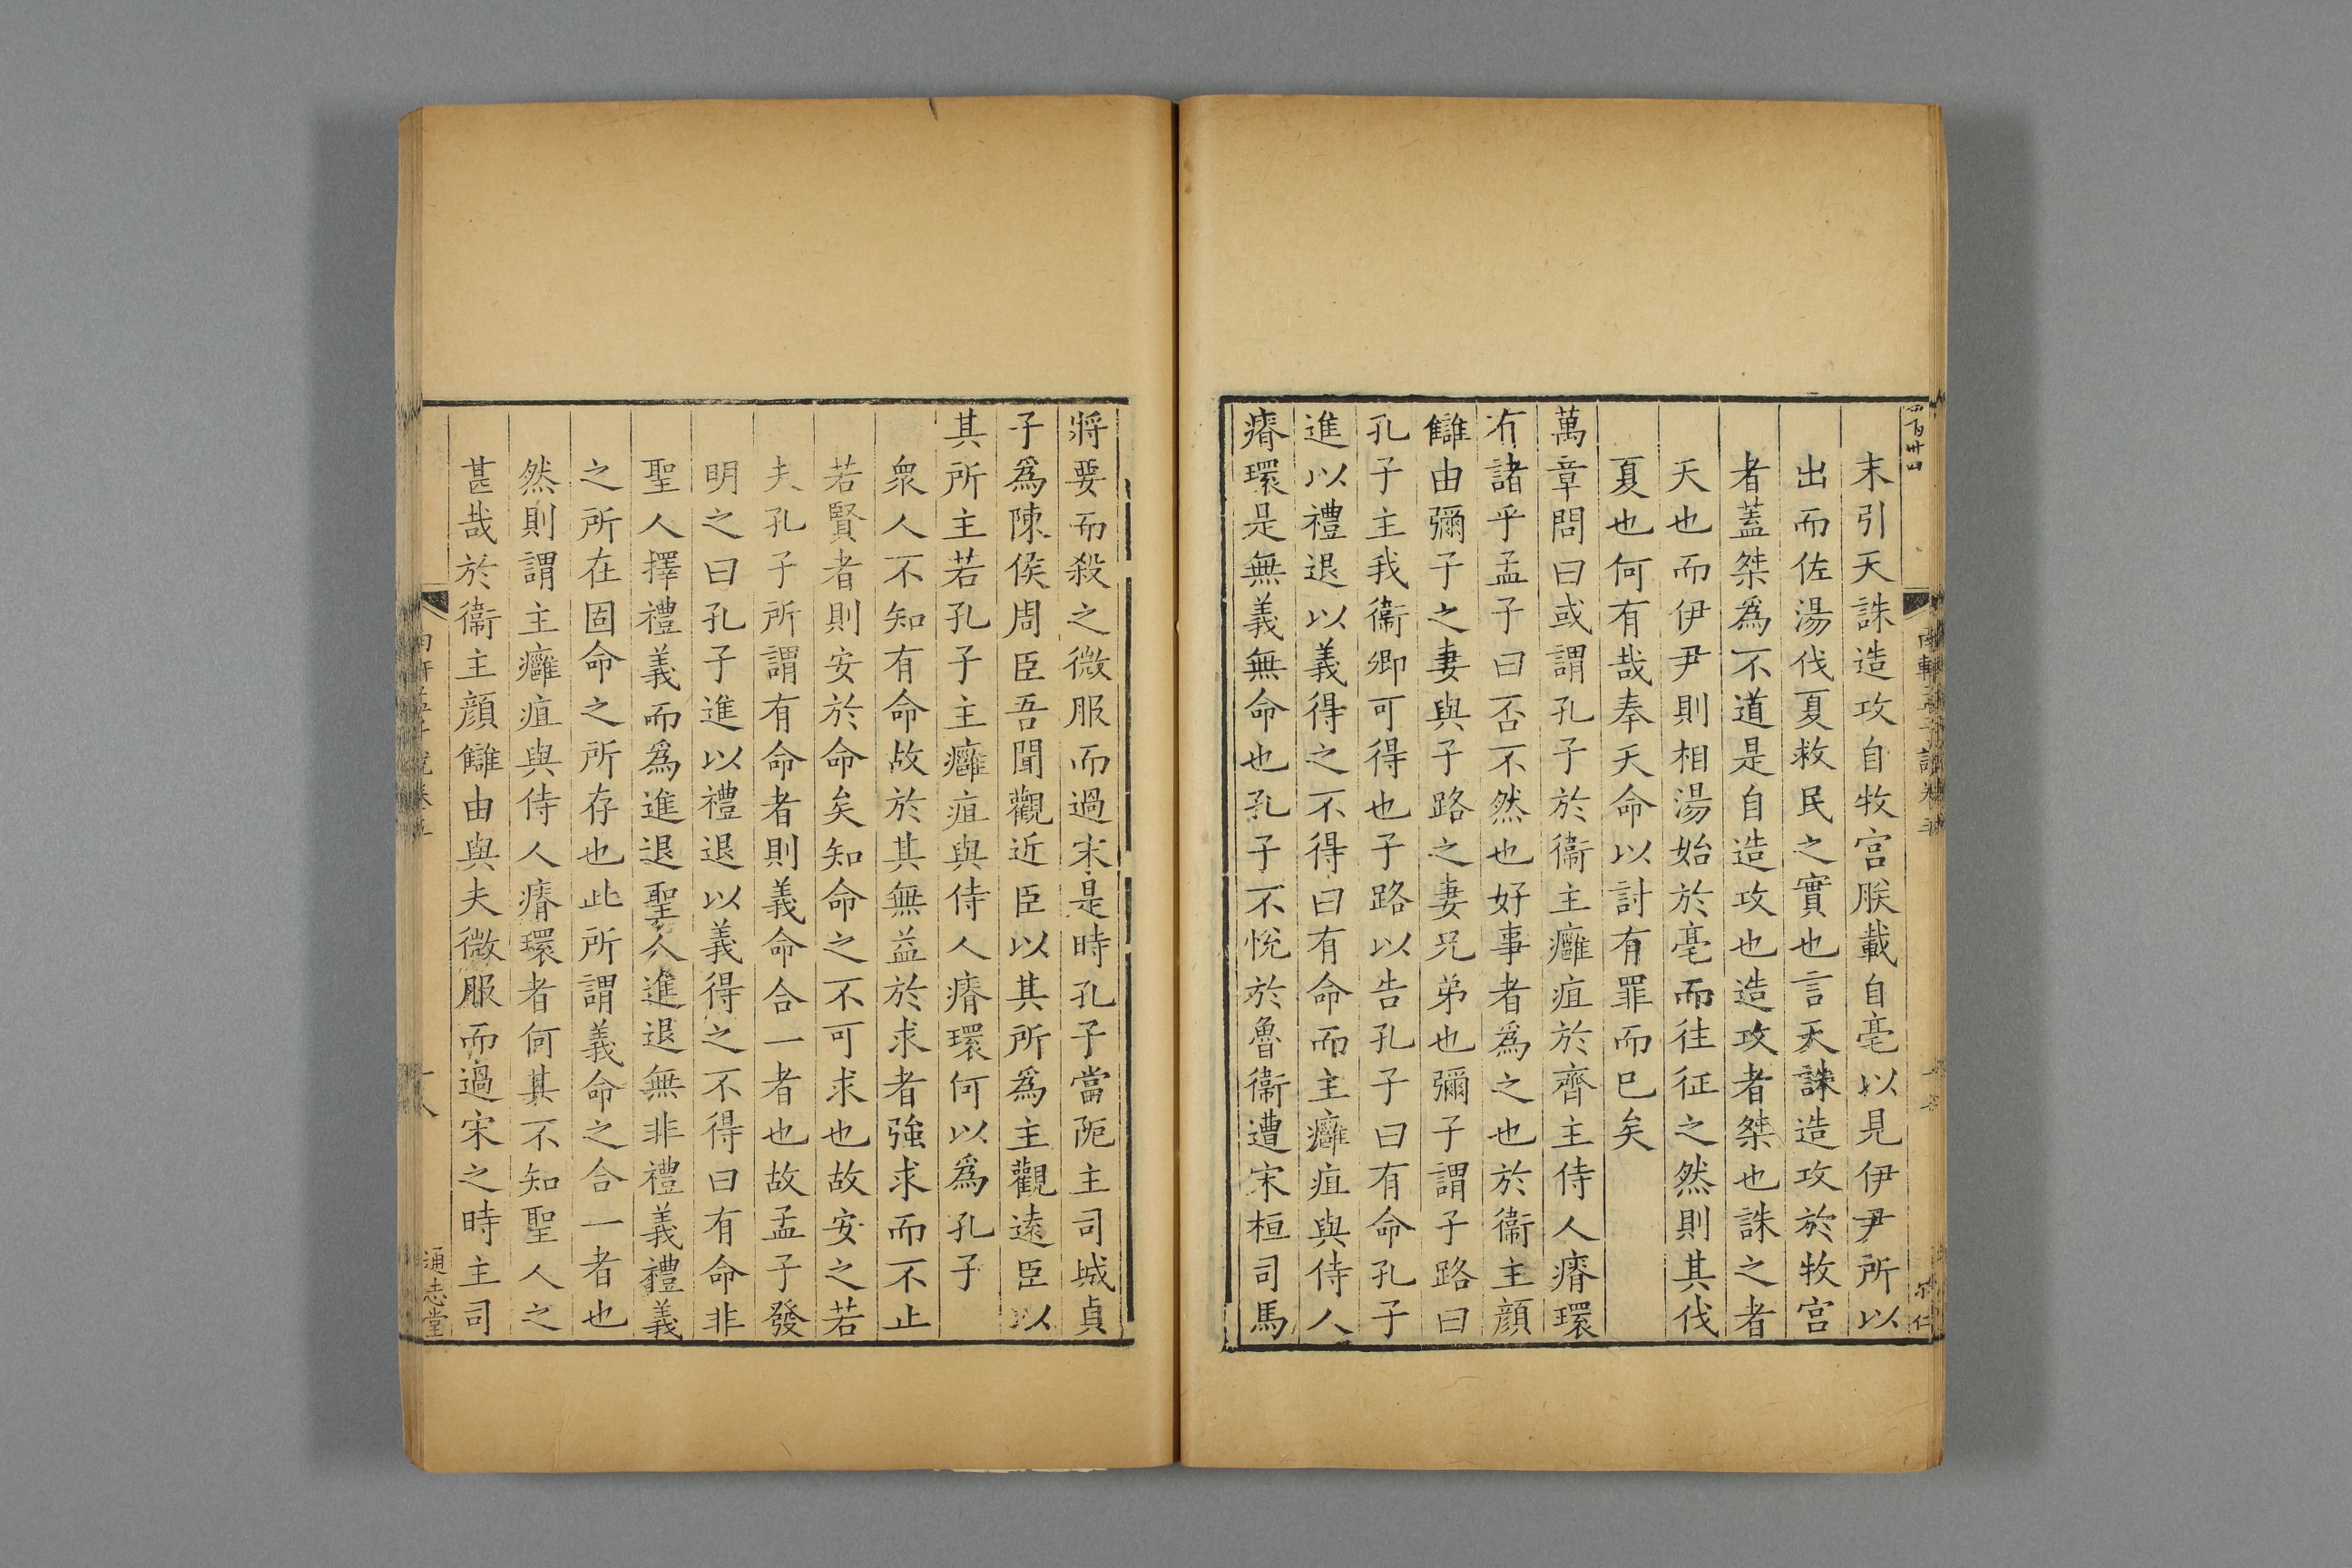 末引天誅造攻自牧宮朕載自亳以見伊尹所以
出而佐湯伐夏救民之實也言天誅造攻於牧宮
者蓋桀爲不道是自造攻也造攻者桀也誅之者
天也而伊尹則相湯始於亳而往征之然則其伐
夏也何有哉奉天命以討有罪而已矣
萬章問曰或謂孔子於衞主癰疽於齊主侍人瘠環
有諸乎孟子曰否不然也好事者爲之也於衞主顏
讎由彌子之妻與子路之妻兄弟也彌子謂子路曰
孔子主我衞卿可得也子路以告孔子曰有命孔子
進以禮退以義得之不得曰有命而主癰疽與侍人
瘠環是無義無命也孔子不悅於魯衞遭宋桓司馬
將要而殺之微服而過宋是時孔子當阨主司城貞
子爲陳侯周臣吾聞觀近臣以其所爲主觀遠臣以
其所主若孔子主癰疽與侍人瘠環何以爲孔子
衆人不知有命故於其無益於求者強求而不止
若賢者則安於命矣知命之不可求也故安之若
夫孔子所謂有命者則義命合一者也故孟子發
明之曰孔子進以禮退以義得之不得曰有命非
聖人擇禮義而爲進退聖人進退無非禮義禮義
之所在固命之所存也此所謂義命之合一者也
然則謂主癰疽與侍人瘠環者何其不知聖人之
甚哉於衞主顏讎由與夫微服而過宋之時主司
通志堂